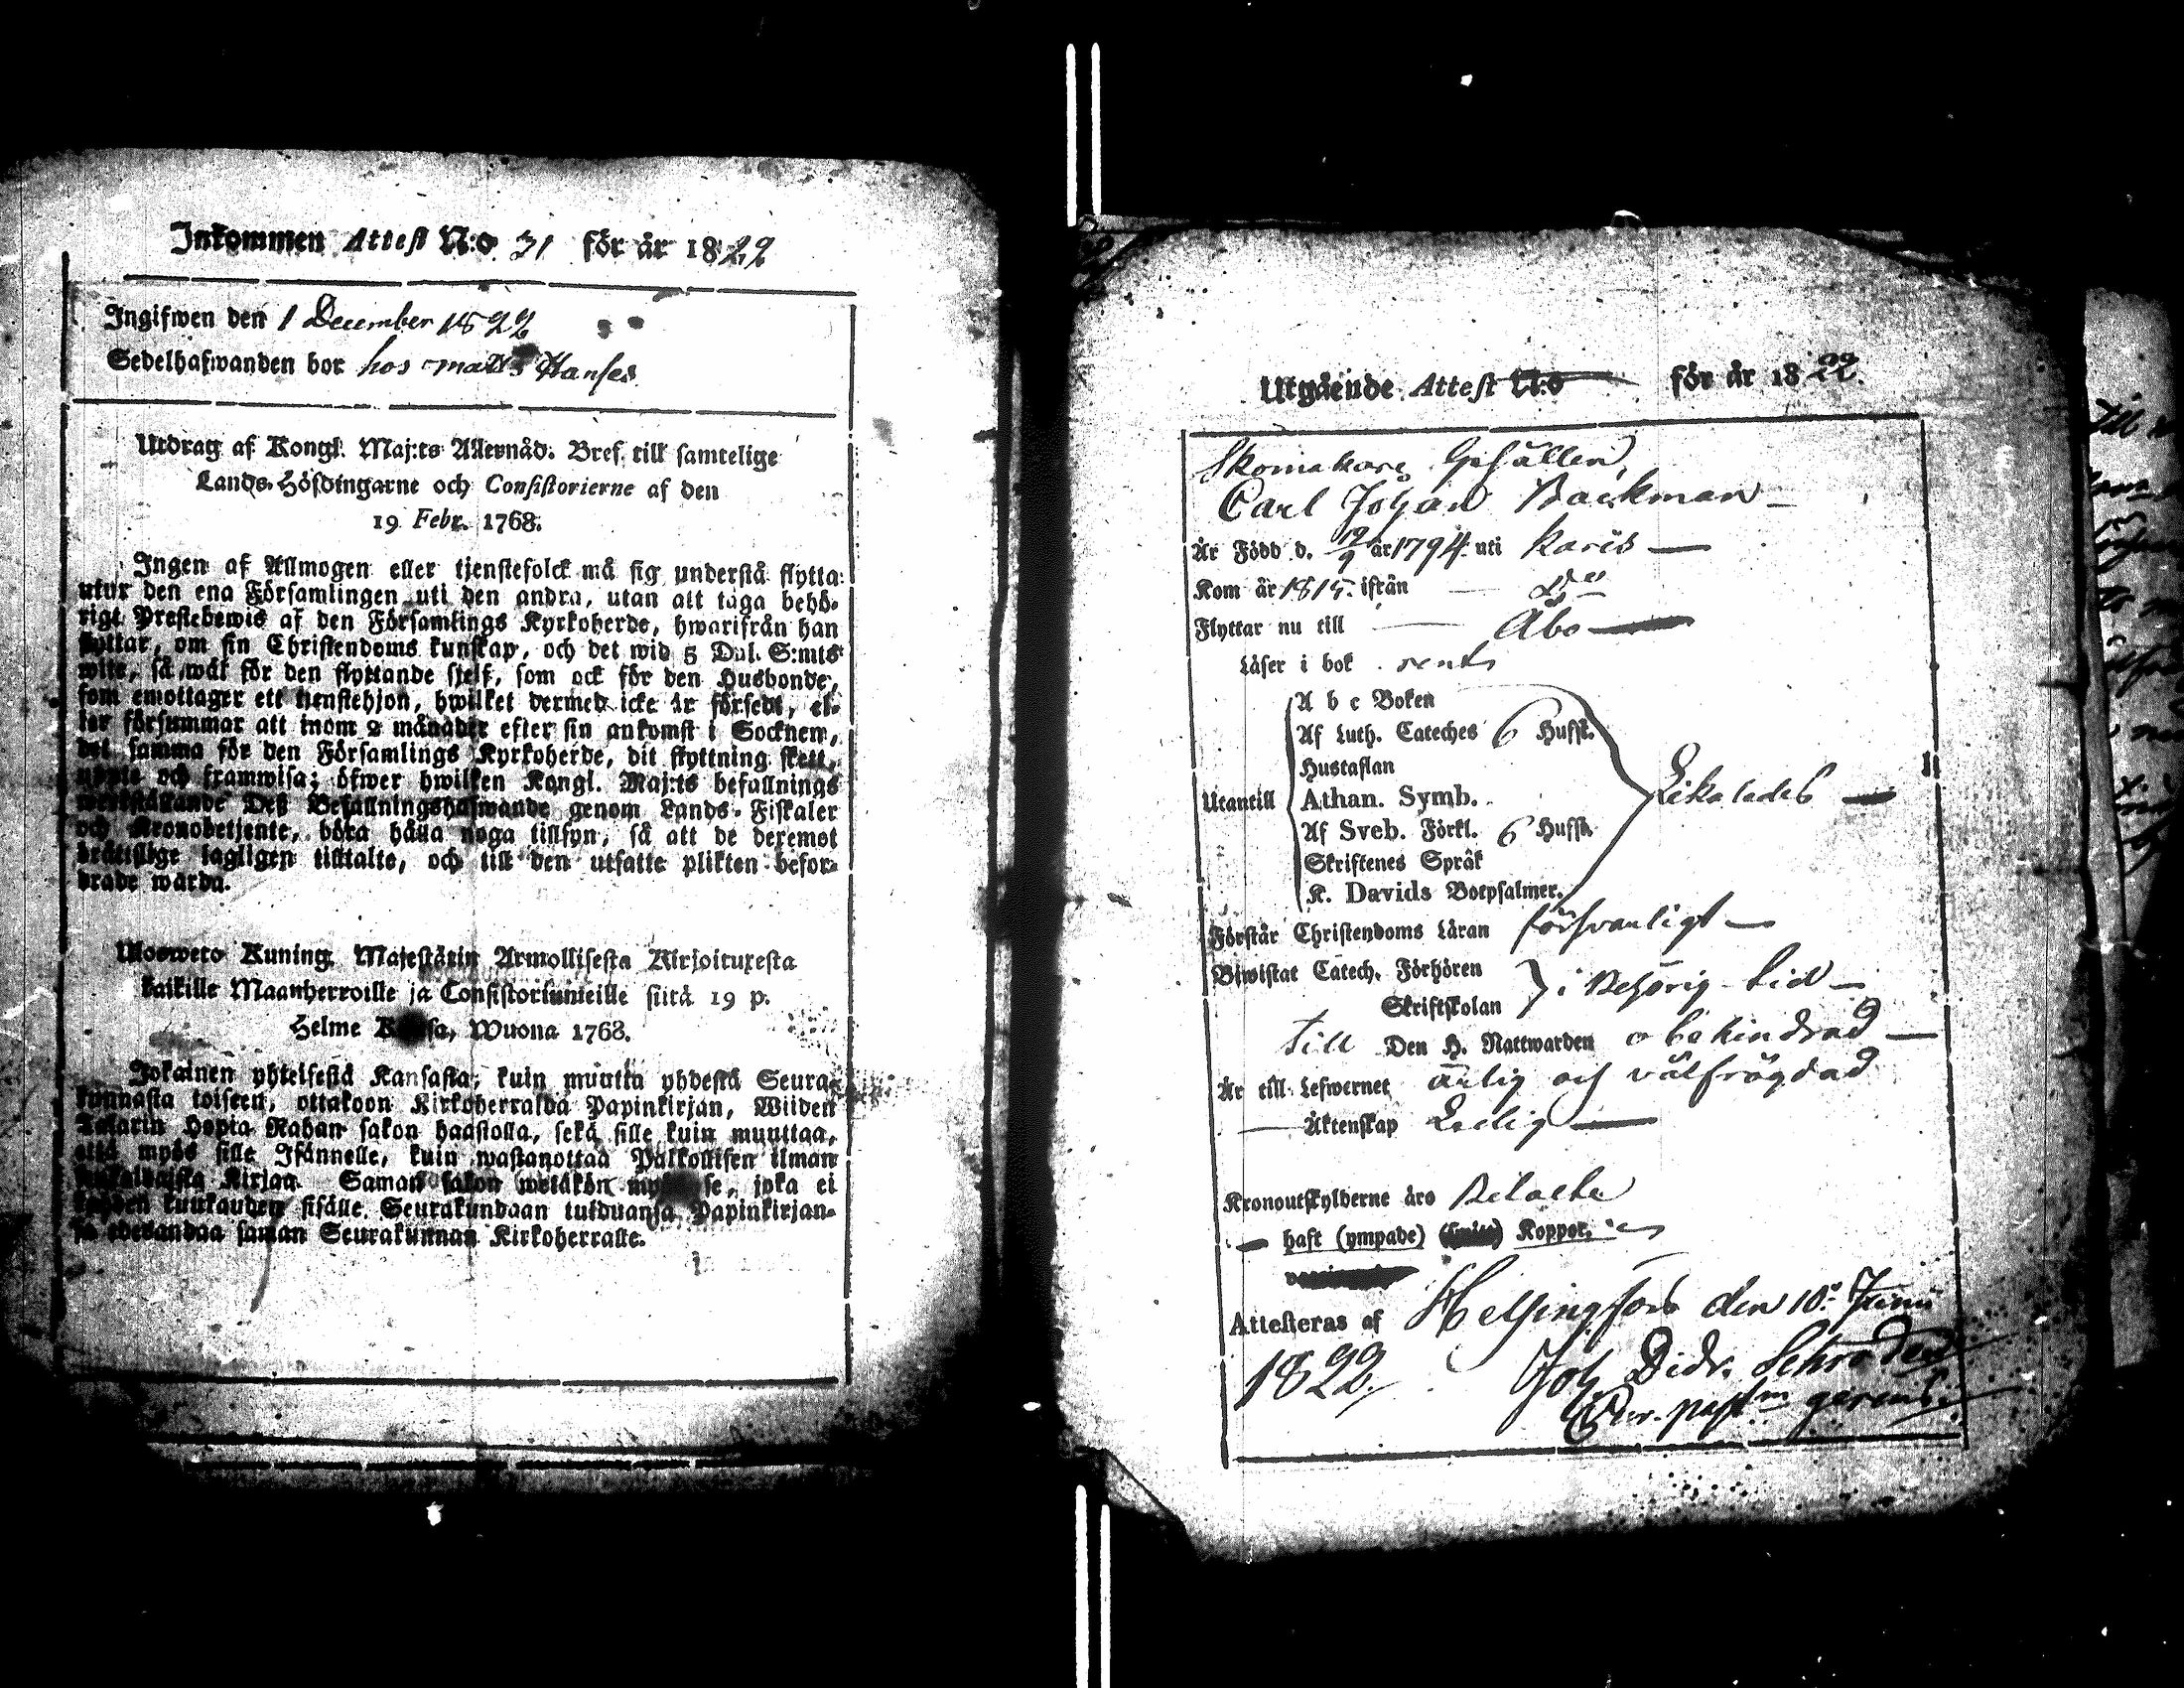 Inkommen Attest N:o 31 för år 1822
Ingifwen den 1 December 1822
Sedelhafwanden bor hos Matts Hanses
Utdrag af Kongl. Maj:ts Allernåd. Bref till samtelige
Lands-Höfdingarne och Consistorierne af den
19 Febr. 1768.
Ingen af Allmogen eller tjenstefolck må sig understå flytta
utur den ena Församlingen uti den andra, utan att taga behö-
rigt Prestebewis af den Församlings Kyrkoherde, hwarifrån han
flyttar, om sin Christendoms kunskap, och det wid 5 Dal. S:mts
wite, så wäl för den flyttande sjelf, som ock för den Husbonde,
som emottager ett tjenstehjon, hwilket dermed icke är försedt, el-
ler försummar att inom 2 månader efter sin ankomst i Socknen,
det samma för den Församlings Kyrkoherde, dit flyttning skett,
upte och framwisa; öfwer hwilken Kongl. Maj:ts befallnings
werkställande Deß Befallningshafwande genom Lands-Fiskaler
och Kronobetjente, böra hålla noga tillsyn, så att de deremot
brättslige lagligen tilltalte, och till den utsatte plikten befor-
drade warda.
Uloswero Kuning. Majestätin Armollisesta Kirjoituxesta
kaikille Maanherroille ja Consistoriumeille siitä 19 p.
Helme Kuusa, Wuona 1768.
Jokainen yhteisestä Kansasta, kuin muutta yhdestä Seura-
kunnasta toiseen, ottakoon Kirkoherralda Papinkirjan, Wiiden
Talarin Hopia Rahan sakon haastolla, sekä sille kuin muuttaa,
että myös sille Isännelle, kuin wastanottaa Palkollisen ilman
Kirjan. Saman sakon wetäkön myös se, joka ei
kahden kuukauden sisälle Seurakundaan tulduansa Papinkirjan-
sa edesandaa saman Seurakunnan Kirkoherralle.
Utgående Attest N:o för år 1822.
Skomakare Gesällen,
Carl Johan Backman
Är Född d. 12/9 år 1794. uti Karis
Kom år 1815. ifrån Do
Flyttar nu till Åbo
Läser i bok rent
A b c Boken
Af Luth. Cateches 6 Hufst.
Hustaflan
Utantill Athan. Symb. Likaledes
Af Sveb. Förkl. 6 Hufst.
Skriftenes Språk
K. Davids Botpsalmer.
Förstår Christendoms Läran försvarligt
Biwistat Catech. Förhören
Skriftskolan i behörig tid
till Den H. Nattwarden obehindrad
Är till Lefwernet ärlig och välfrägdad
Äktenskap Ledig
Kronoutskylderne äro Betalte
haft (ympade) Koppor.
Attesteras af Helsingfors den 10. Junii
1822. Joh. Didr. Schroderus
Cur. past. gerens.